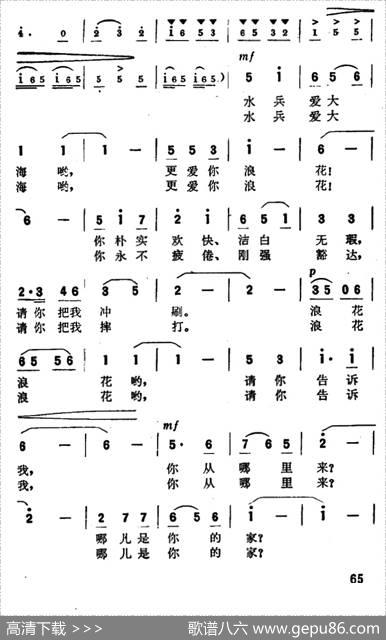 4· 0 | 2 3 2 | i 6 5 3 | 6 5 3 2 | 1 5 5
mf
i 6 5 i 6 5 | 5 5 5 | i 6 5 i 6 5 ) | 5 i | 6 5 6
水兵 爱大
水兵 爱大
1 1 | 1 – | 5 5 3 | i – | 6 –
海哟, 更爱你 浪 花!
海哟, 更爱你 浪 花!
6 – | 5 i 7 | 2 i | 6 5 i | 5 –
你朴实 欢快、洁白 无瑕,
你永不 疲倦、刚强 豁达,
p
2·3 4 6 | 3 5 | 2 – | 2 – | 3 5 0 6
请你把我 冲 刷。 浪花
请你把我 摔 打。 浪花
6 5 5 6 | i 1 | 1 – | 5 3 | i· i
浪 花哟, 请你 告诉
浪 花哟, 请你 告诉
mf
6 – | 6 – | 5· 6 | 7 6 5 | 2 –
我, 你从 哪里 来?
我, 你从 哪里 来?
2 – | 2 7 7 | 6 5 6 | i – | i –
哪儿是 你的 家?
哪儿是 你的 家?
65
高清下载 >>>
歌谱八六 www.gepu86.com